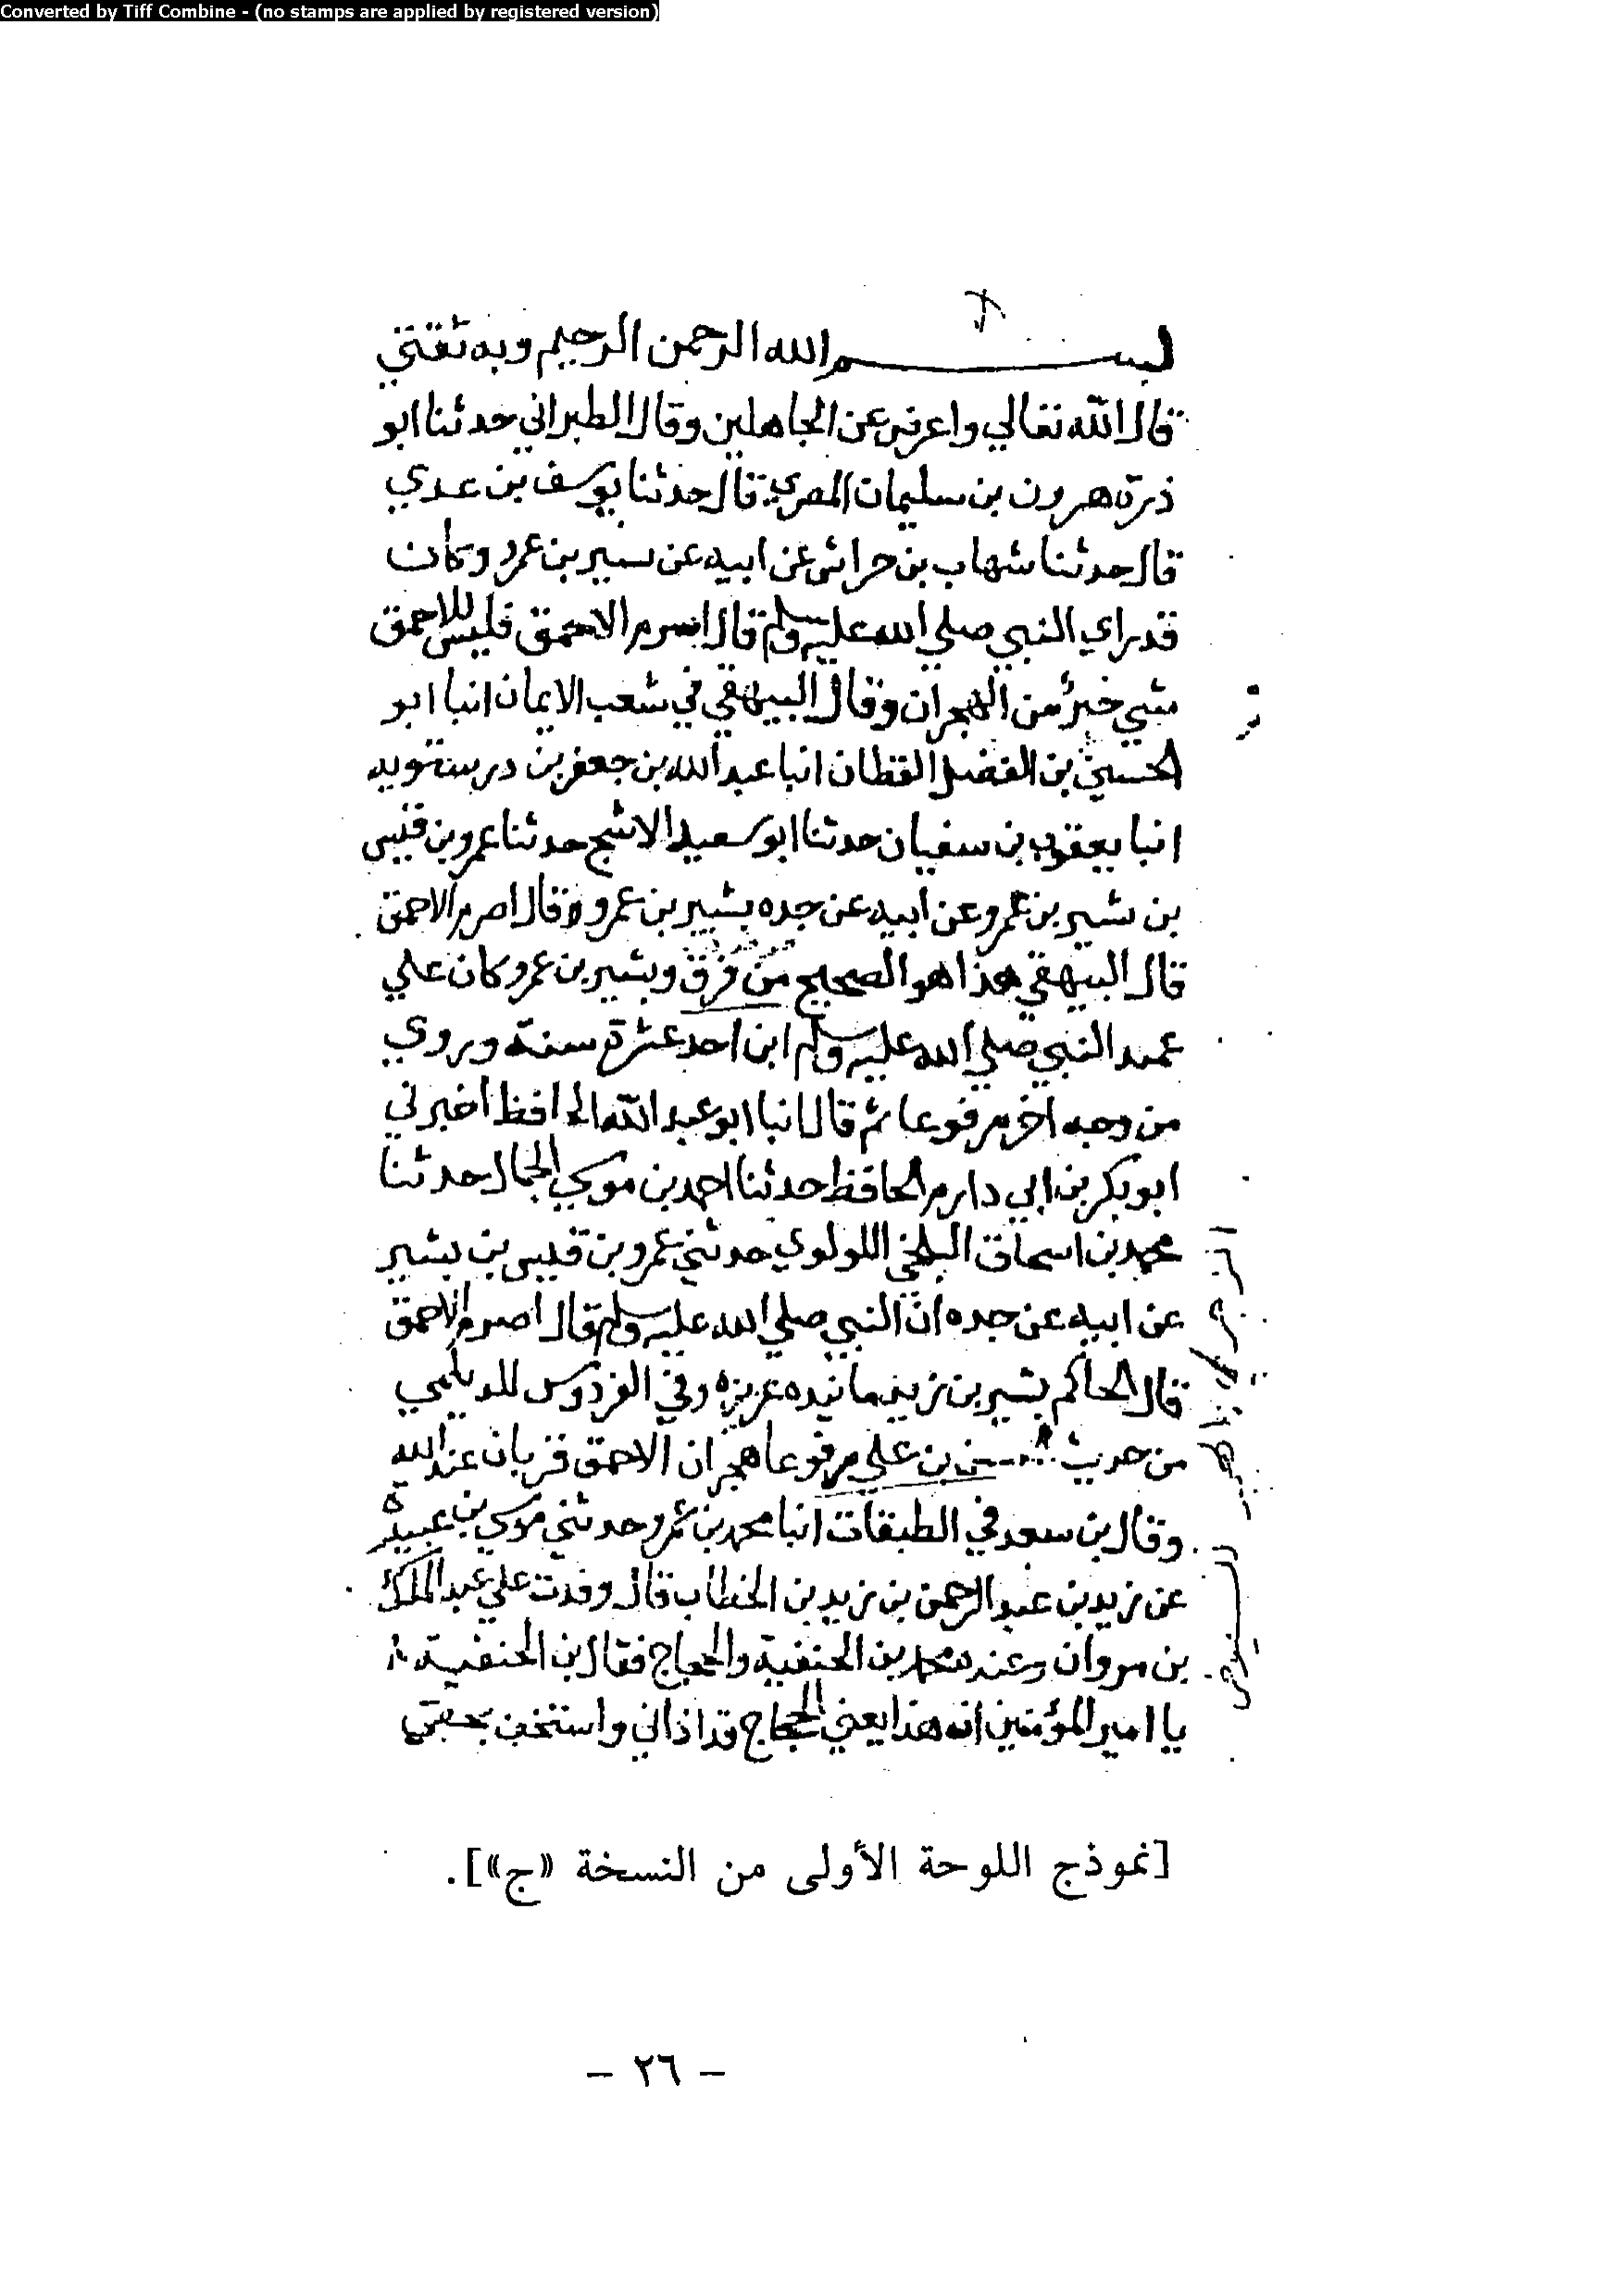 Converted by Tiff Combine - (no stamps are applied by registered version)
بسم الله الرحمن الرحيم وبه ثقتي
قال الله تعالي واعرض عن الجاهلين وقال الطبراني حدثنا ابو
ذرة هرون بن سليمان المصري قال حدثنا يوسف بن عدي
قال حدثنا شهاب بن خراش عن ابيه عن يسير بن عمرو وكان
قد راي النبي صلي الله عليه وسلم قال اصرم الاحمق فليس للاحمق
شي خير من الهجران وقال البيهقي في شعب الايمان انبا ابو
الحسين بن الفضل القطان انبا عبد الله بن جعفر بن درستويه
انبا يعقوب بن سفيان حدثنا ابو سعيد الاشج حدثنا عمرو بن قيس
بن بشير بن عمرو عن ابيه عن جده بشير بن عمرو قال اصرم الاحمق
قال البيهقي هذا هو الصحيح وبشير بن عمرو كان علي
عهد النبي صلي الله عليه وسلم ابن احد عشرة سنة وروي
من وجه اخر مرفوعا ثم قال انبا ابو عبد الله الحافظ اخبرني
ابو بكر بن ابي دارم الحافظ حدثنا احمد بن موسي الجمال حدثنا
محمد بن اسحاق البلخي اللولوي حدثني عمرو بن قيس بن بشير
عن ابيه عن جده ان النبي صلي الله عليه وسلم قال اصرم الاحمق
قال الحاكم بشير بن زيد عزيزه وفي الفردوس للديلمي
من حديث بن علي مرفوعا هجران الاحمق قربان عند الله
وقال بن سعد في الطبقات انبا محمد بن عمر وحدثني موسي بن عبيدة
عن زيد بن عبد الرحمن بن زيد بن الخطاب قال وفدت علي عبد الملك
بن مروان وعنده محمد بن الحنفية والحجاج فقال بن الحنفية
يا امير المؤمنين انه هذا يعني الحجاج قد اذاني واستخف بحقي
[نموذج اللوحة الأولى من النسخة «ج»].
- ٢٦ -